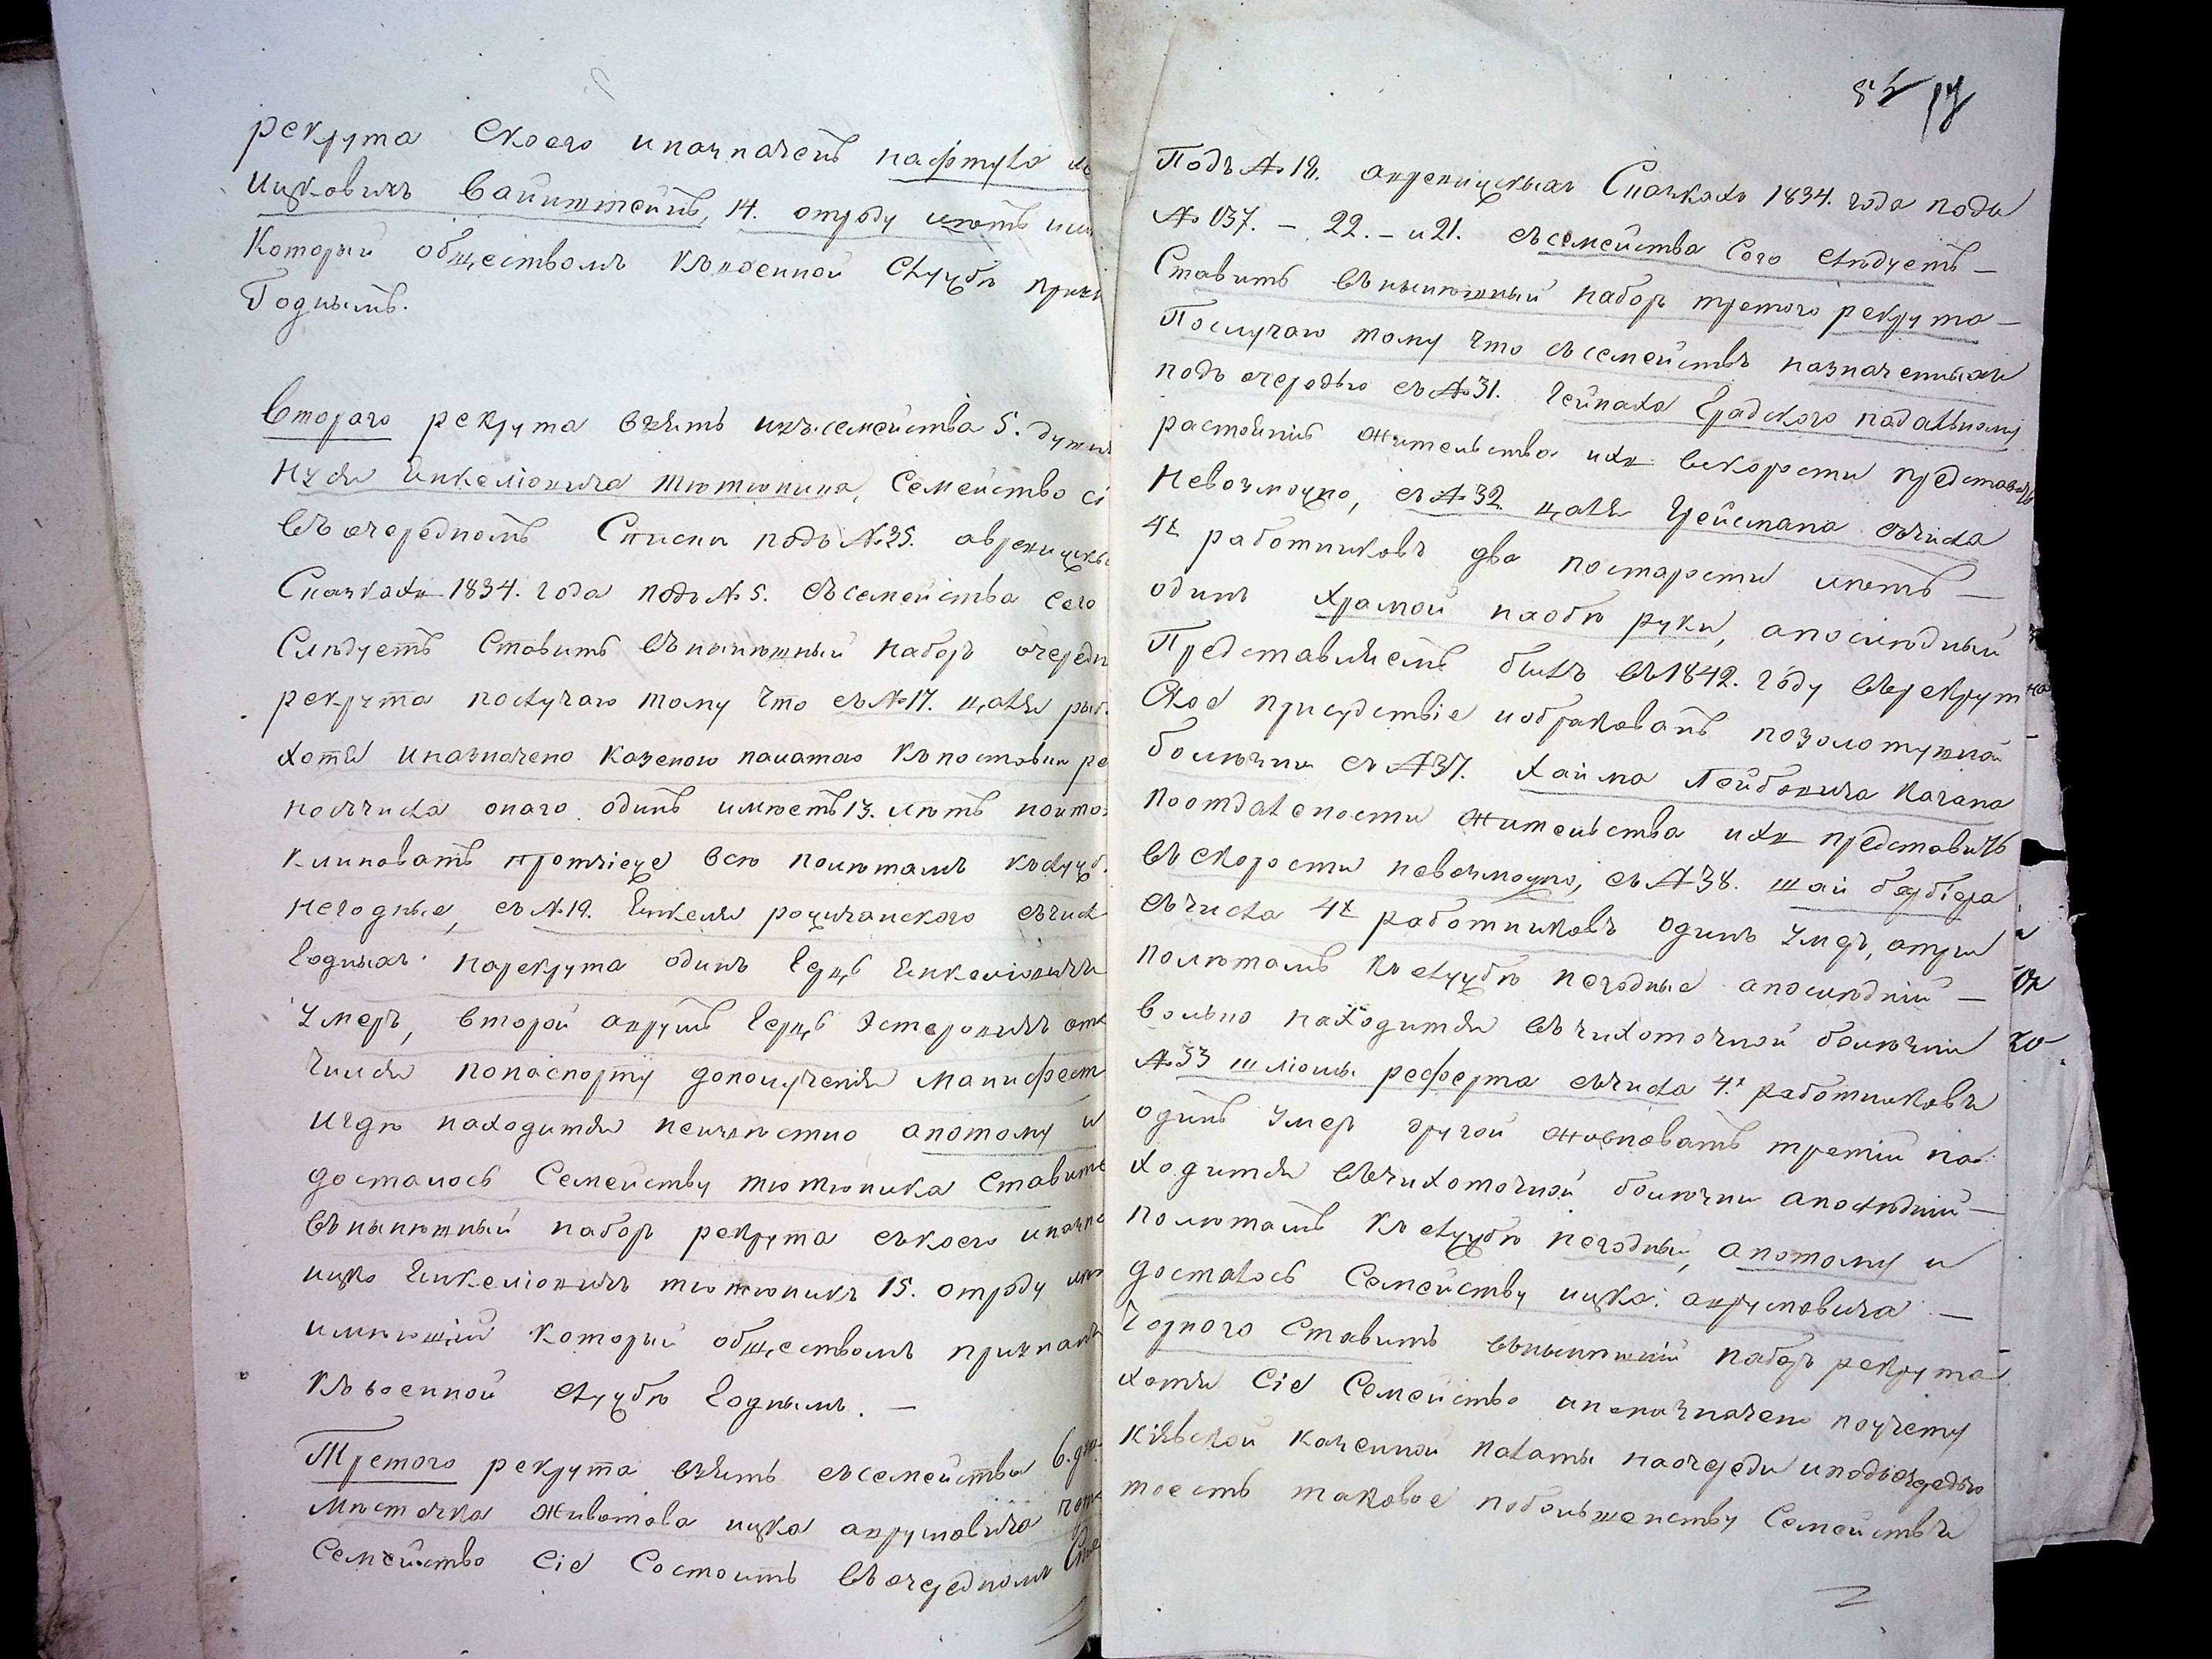 рекрута Скоего иназначенъ нафтула
Ицковичъ Вайнштейнъ, 14. отроду летъ
Который обществомъ Квоенной Службѣ
Годнымъ.
Второго рекрута взять изъ семейства 5.
Нусы Янкеліовича тютюнника, Семейство
Въ очередномъ Списки подъ №25.
Сказкахъ 1834. года подъ №5. съсемейства сего
Слѣдуетъ Ставить Вънынѣшный наборъ
рекрута послучаю тому Что съ №17. цаля
хотя иназначено Казеною палатаю Къпоставки
носъчисла онаго одинъ имѣетъ 13. лѣтъ
протчіеже Всѣ полѣтамъ
негодные, съ №19. Янкеля рощчанского
Годныхъ нарекрута одинъ Герцъ Янкеліовичъ
Умеръ, второй Герцъ Эстеровичъ
попаспорту дополученія манифест
игдѣ находится неизвѣстно апотому и
досталось Семейству тютюника Ставить
Вънынѣшный наборъ рекрута съкоего
ицко Янкеліовичъ тютюникъ 15. отроду
имѣющій Который обществомъ признанъ
Къвоенной службѣ Годнымъ. —
Третого рекрута взять съсемейства 6.
мѣстечка Животова ицка аврумовича
Семейство Сіе Состоитъ Въочередномъ
52
Подъ №18. Сказкахъ 1834. года подъ
№137. – 22. – и 21. съсемейства Сего слѣдуетъ –
Ставить Вънынѣшный наборъ третого рекрута –
Послучаю тому что съсемействъ назначенныхъ
подъ очередью съ №31. Гейнаха Градского
растоянію жительства ихъ Вскорости представить
Невозможно, съ №32 цаля Гройсмана съчисла
4х работниковъ два постарости летъ –
одинъ Храмой наобѣ руки, апослѣдный
Представляемъ былъ Въ1842. году Върекрут
Ское присудствіе иобракованъ позолотушной
болѣзни съ №37. Хайма Лейбовича Кагана
поотдалености жительства ихъ представить
Въскорости невозможно, съ №38. шаи
съчисла 4х работниковъ одинъ Умеръ, атри
полѣтамъ къслужбѣ негодные апослѣдній –
больно находится Въчихоточной болѣзни
№33 шліомы реферта съчисла 4х работниковъ
одинъ Умеръ другой третій на
ходится Въчихоточной болѣзни апослѣдній –
полѣтамъ къслужбѣ негодный, апотому и
досталось Семейству ицка аврумовича –
Ставить Вънынѣшній наборъ рекрута
хотя Сіе Семейство поучету
Кіевской казенной палаты наочереди иподъочередью
тоесть таковое побольшенству Семействъ